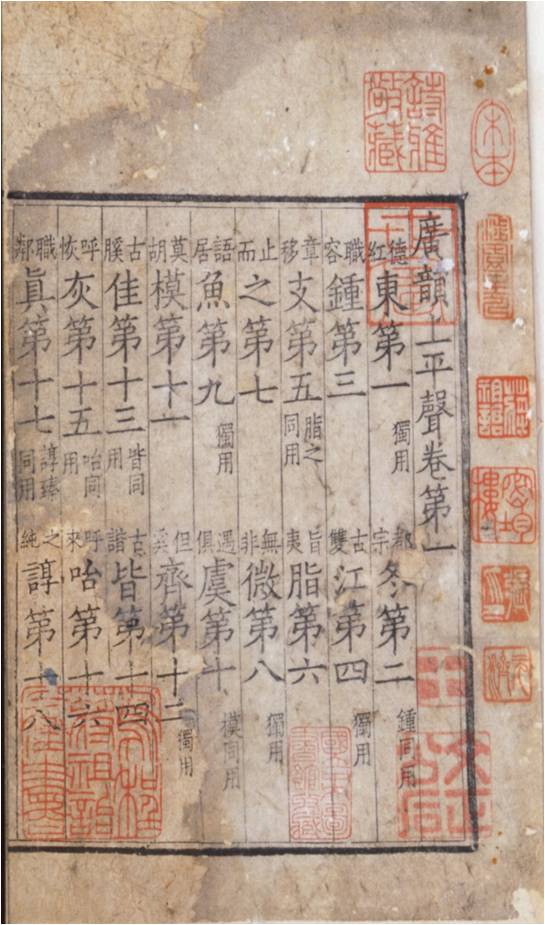 廣韻上平聲卷第一
德紅東第一獨用都宗冬第二鍾同用
職容鍾第三古雙江第四獨用
章移支第五脂之同用旨夷脂第六
止而之第七無非微第八獨用
語居魚第九獨用遇俱虞第十模同用
莫胡模第十一但奚齊第十二獨用
古膎佳第十三皆同用古諧皆第十四
呼恢灰第十五咍同用呼來咍第十六
職鄰眞第十七諄臻同用之純諄第十八
宋本